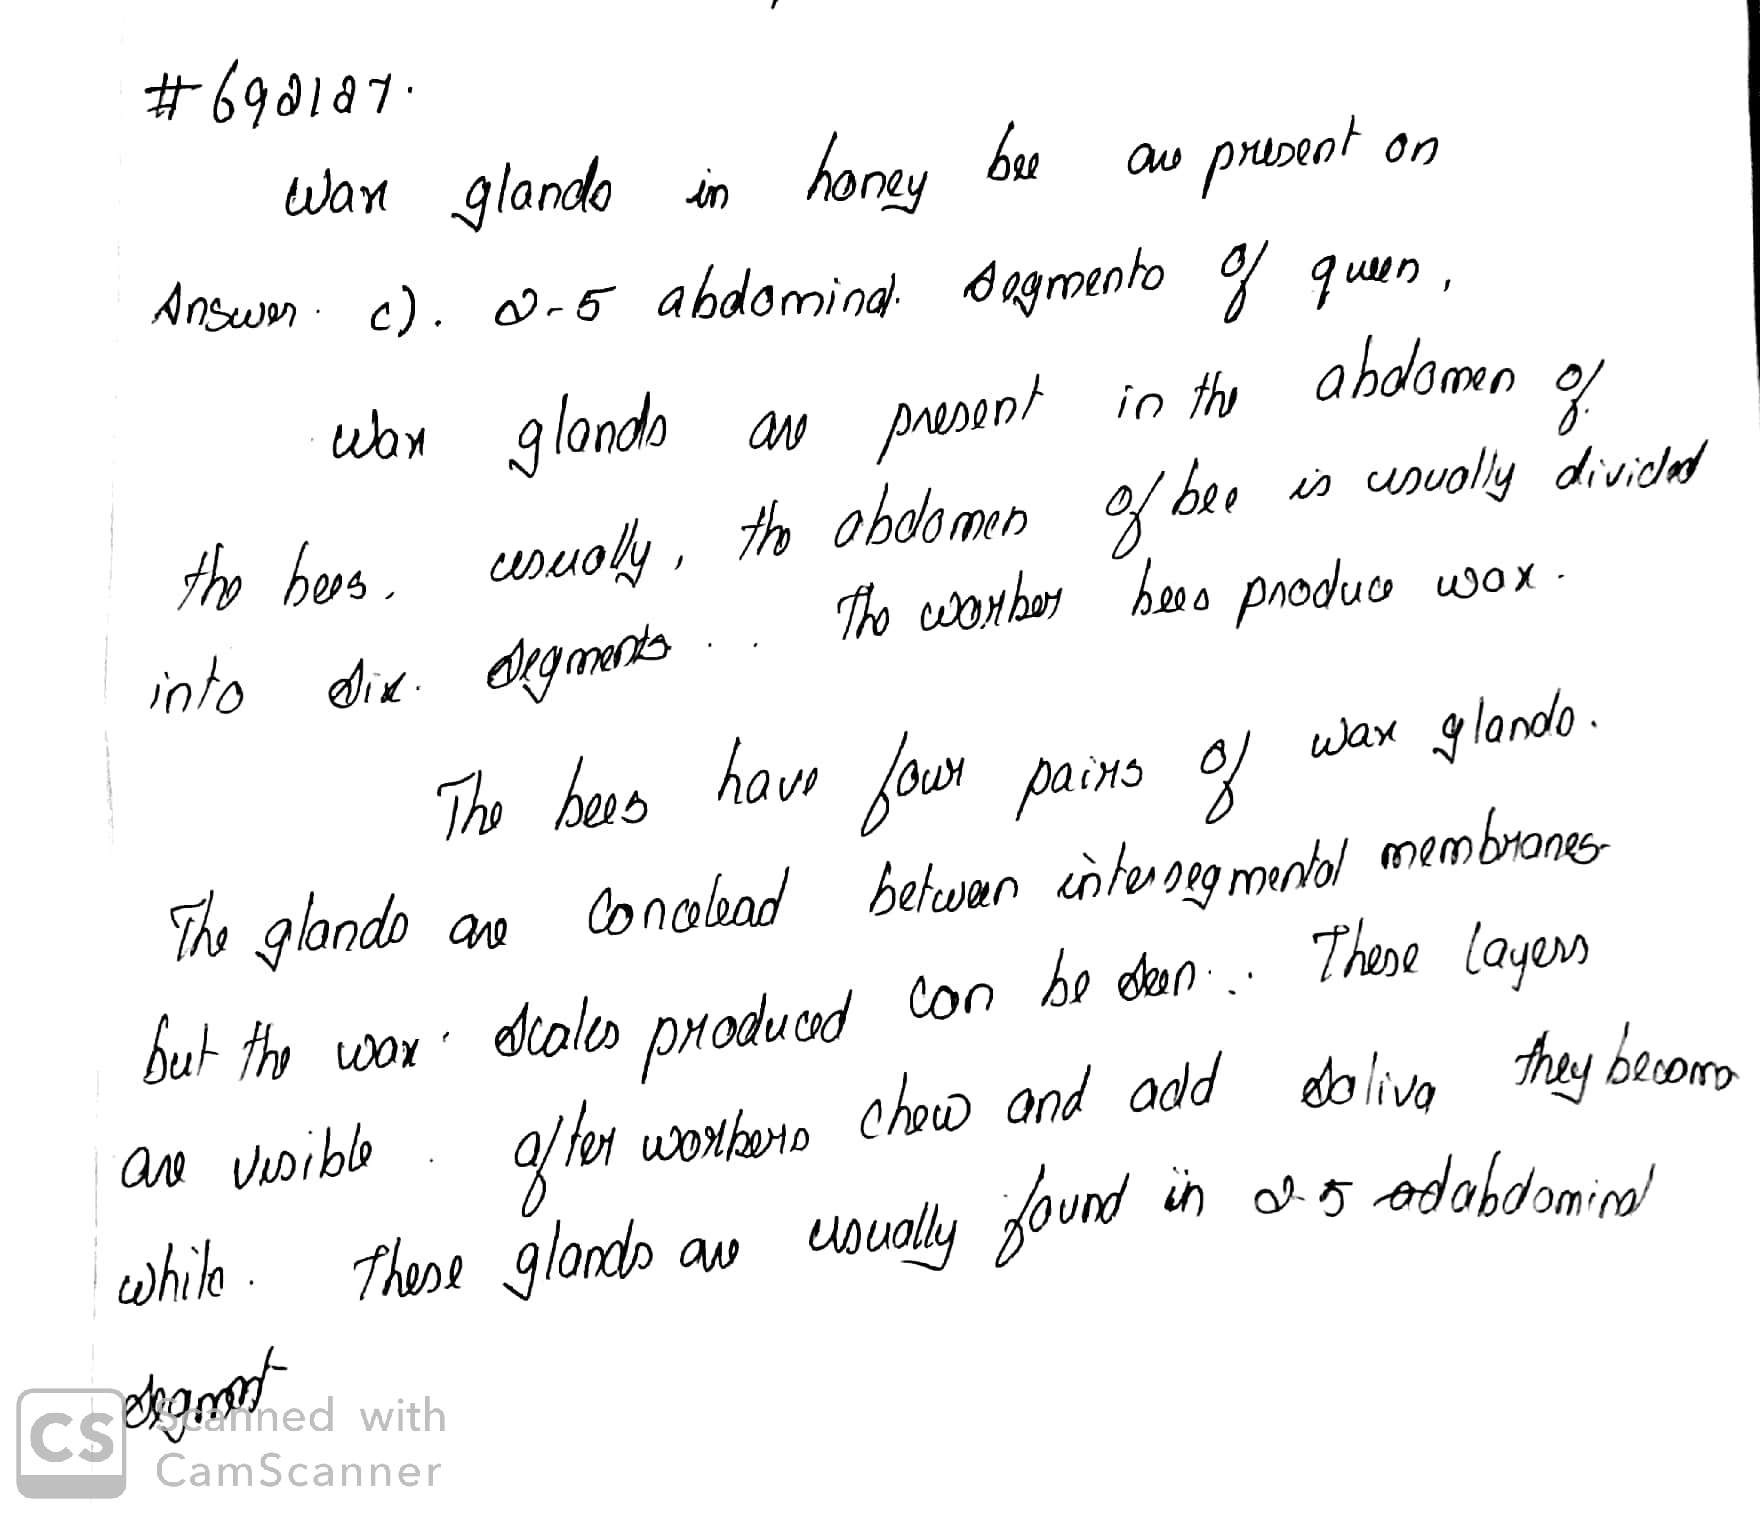 #692127.
Wax glands in honey bee are present on
Answer. c). 2-5 abdominal. segments of queen,
Wax glands are present in the abdomen of
the bees. usually, the abdomen of bee is usually divided
into six. segments.. The worker bees produce wax.
The bees have four pairs of wax glands.
The glands are Concelead between intersegmental membranes
but the wax scales produced can be seen.. These layers
are visible. after workers chew and add saliva they become
while. These glands are usually found in 2-5 abdominal
segment
CS Scanned with
CamScanner